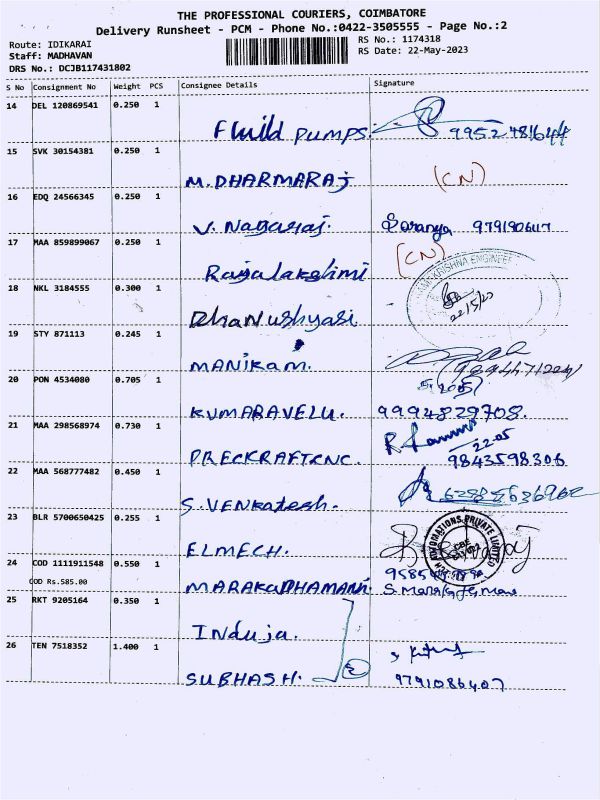 THE PROFESSIONAL COURIERS, COIMBATORE
Delivery Runsheet - PCM - Phone No.:0422-3505555 - Page No.:2
Route: IDIKARAI
RS No.: 1174318
Staff: MADHAVAN
RS Date: 22-May-2023
DRS No.: DCJB117431802
S No Consignment No Weight PCS Consignee Details Signature
14 DEL 120869541 0.250 1
Fluid PUMPS. 9952481644
15 SVK 30154381 0.250 1
M. DHARMARAJ (CN)
16 EDQ 24566345 0.250 1
V. Nagaraj. Saranya
17 MAA 859899067 0.250 1
Rajalakshmi (CN)
18 NKL 3184555 0.300 1
KRISHNA ENGINEER
Dhanushyasi 22/5/23
19 STY 871113 0.245 1
MANIKAM.
20 PON 4534080 0.705 1
KUMARAVELU. 9994829708.
21 MAA 298568974 0.730 1
22.05
PRECKRAFT CNC. 9843598306
22 MAA 568777482 0.450 1
S. VENKatesh.
23 BLR 5700650425 0.255 1
AUTOMATIONS PRIVATE LIMITED
CBE
ELMECH.
24 COD 1111911548 0.550 1
COD Rs.585.00
MARAKADHAMANI
25 RKT 9205164 0.350 1
Induja.
26 TEN 7518352 1.400 1
SUBHASH. 9791086407